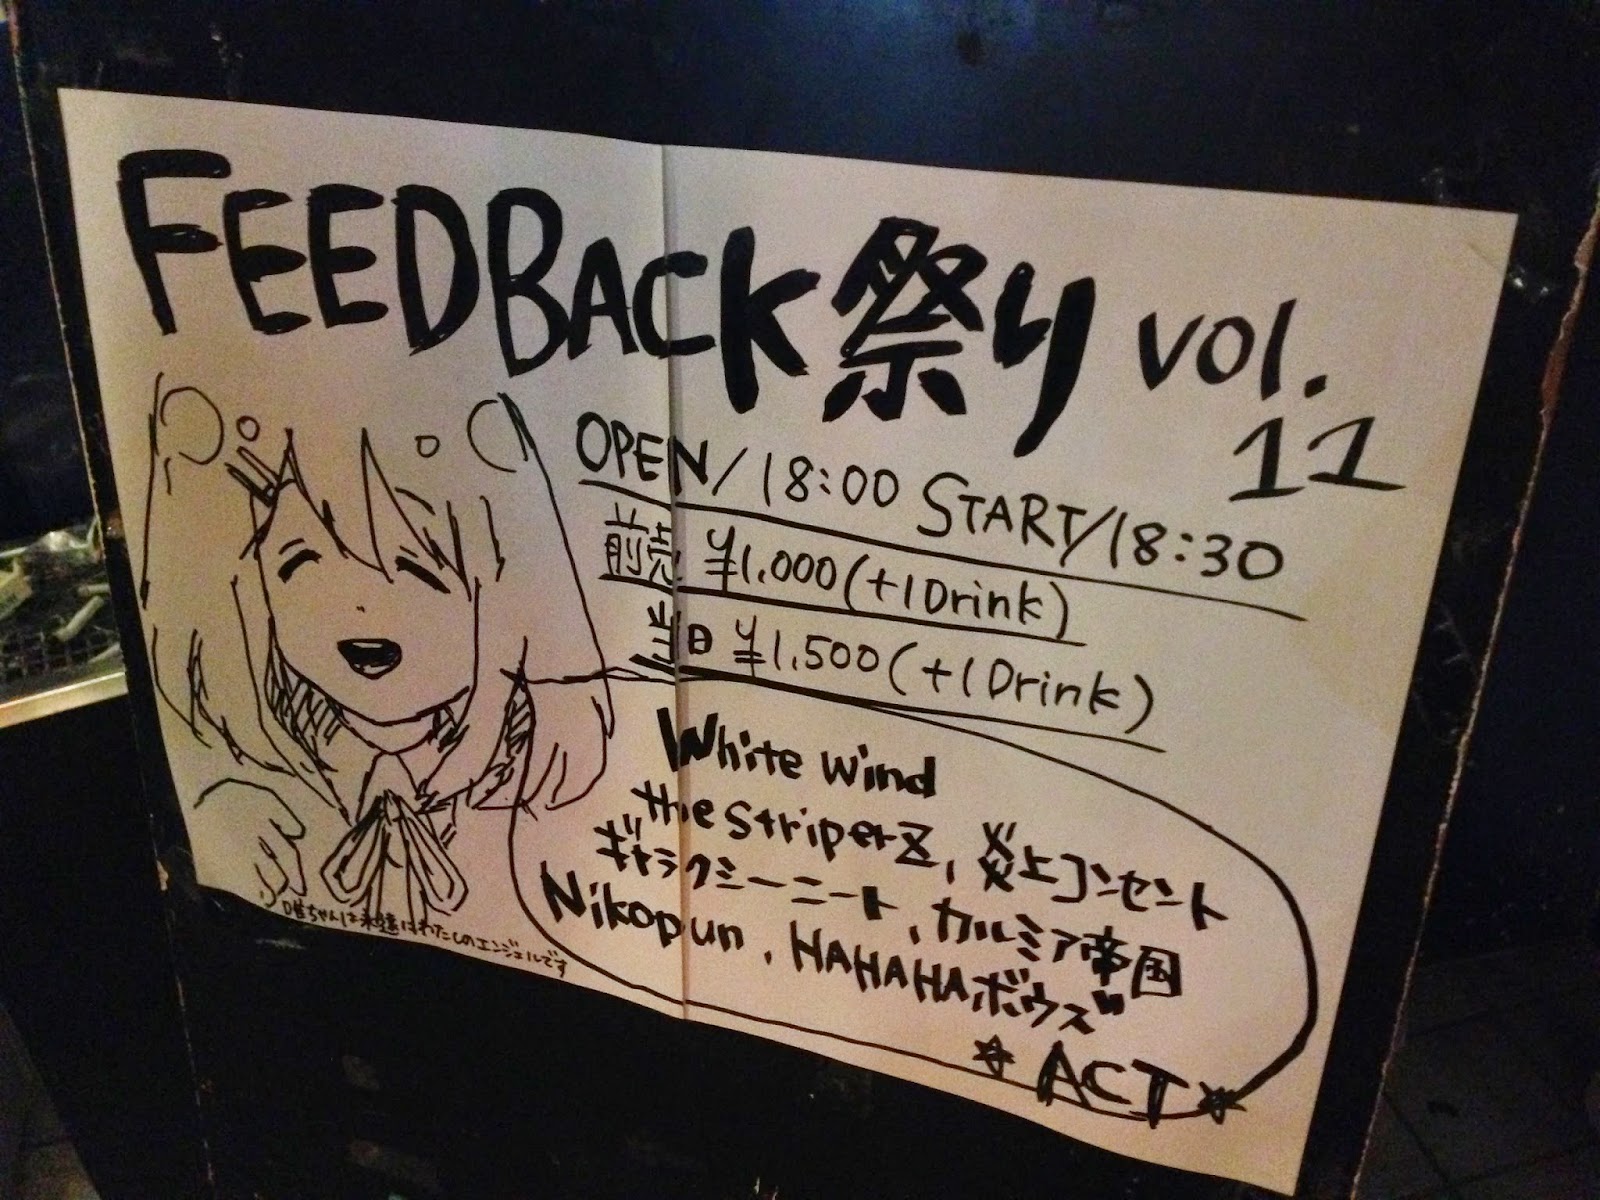 FEEDBACK祭り vol.
11
OPEN/18:00 START/18:30
前売 ¥1,000(+1Drink)
当日 ¥1,500(+1Drink)
White wind
the striperZ, 炎上コンセント
ギャラクシーニート, カルミア帝国
Nikopun, HAHAHAボウズ
☆ACT☆
唯ちゃんは永遠にわたしのエンジェルです